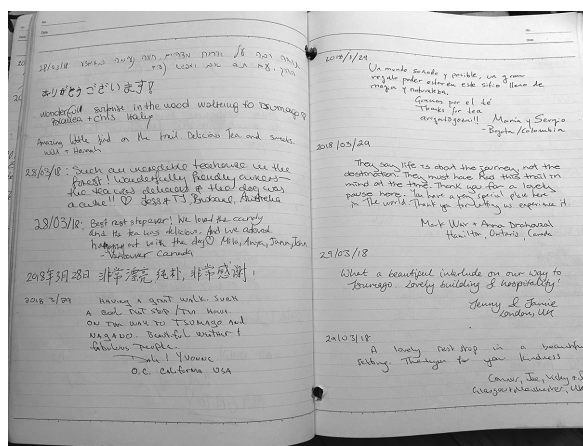 28/03/18
ありがとうございます!
wonderful surprise in the wood walking to Tsumago
Amazing little find on the trail Delicious Tea and sweets.
Will + Hannah
28/03/18: Such an incredible teahouse in the
forest! Wonderfully friendly owners –
the tea was delicious & the dog was
a cutie!! ♡ Jess & TJ, Brisbane, Australia
28/03/18: Best rest stopover! We loved the candy
and the tea was delicious. And we adored
hanging out with the dog ♡
- Vancouver Canada
2018年3月28日 非常漂亮, 纯朴, 非常感谢!
2018 3/29 Having a great walk. Such
A cool rest stop / Tea house
ON THE WAY TO TSUMAGO AND
NAGANO. Beautiful weather &
fabulous people.
Yvonne
O.C. California USA
2018/3/29
Un mundo soñado y posible, un gran
regalo poder estar en este sitio lleno de
magia y naturaleza.
Gracias por el té
Thanks for tea
Maria y Sergio
- Bogota / Colombia
2018/03/29
They say life is about the journey, not the
destination. They must have had this trail in
mind at the time. Thank you for a lovely
pause here. You have a very special place
in the world. Thank you for letting us experience it.
Mark Weir + Anna Drahovzal
Hamilton, Ontario, Canada
29/03/18
What a beautiful interlude on our way to
Tsumago. Lovely building & hospitality!
Jenny & Jamie
London, UK
29/03/18
A lovely rest stop in a beautiful
setting. Thankyou for your kindness
Connor, Joe, Vicky +